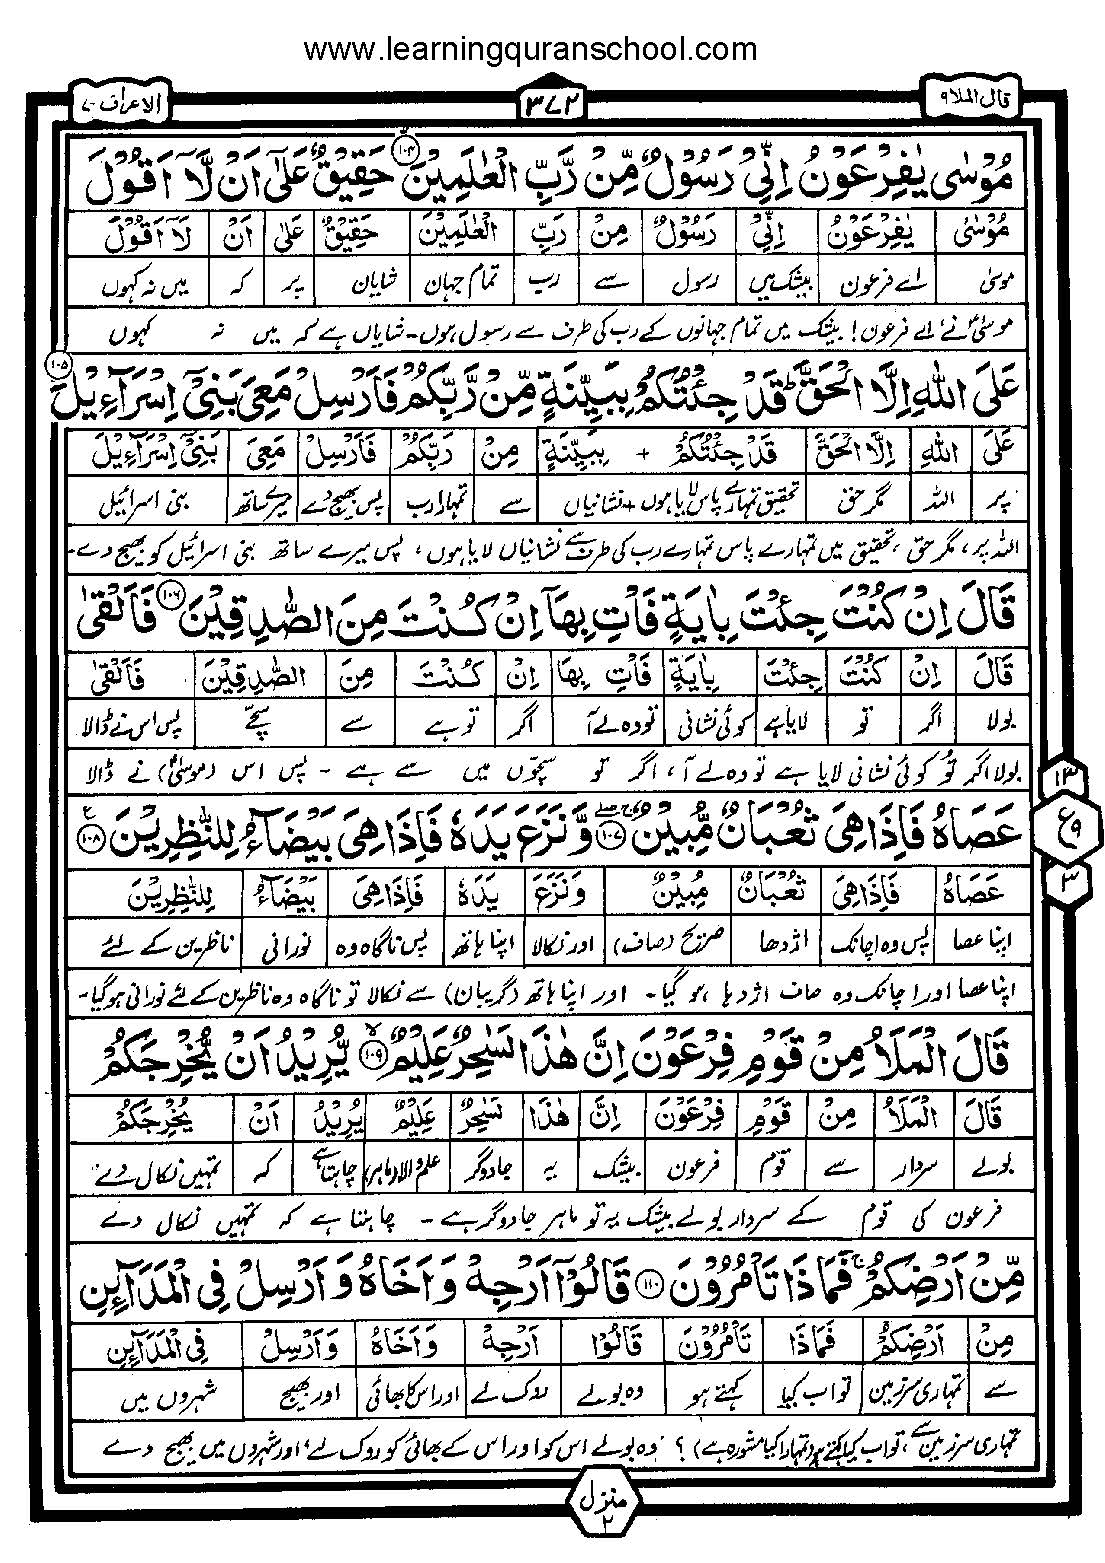 www.learningquranschool.com
قال الملا ٩
٣٧٢
الاعراف ٧
مُوْسٰى يٰفِرْعَوْنُ اِنِّيْ رَسُوْلٌ مِّنْ رَّبِّ الْعٰلَمِيْنَ ۱۰۴ حَقِيْقٌ عَلٰٓى اَنْ لَّآ اَقُوْلَ
مُوْسٰى يٰفِرْعَوْنُ اِنِّيْ رَسُوْلٌ مِنْ رَبِّ الْعٰلَمِيْنَ حَقِيْقٌ عَلٰى اَنْ لَآ اَقُوْلَ
موسیٰ اے فرعون بیشک میں رسول سے رب تمام جہان شایان پر کہ میں نہ کہوں
موسیٰؑ نے اے فرعون! بیشک میں تمام جہانوں کے رب کی طرف سے رسول ہوں۔ شایاں ہے کہ میں نہ کہوں
عَلَى اللّٰهِ اِلَّا الْحَقَّ قَدْ جِئْتُكُمْ بِبَيِّنَةٍ مِّنْ رَّبِّكُمْ فَاَرْسِلْ مَعِيَ بَنِيْٓ اِسْرَآءِيْلَ ۱۰۵
عَلَى اللّٰهِ اِلَّا الْحَقَّ قَدْ جِئْتُكُمْ + بِبَيِّنَةٍ مِنْ رَبِّكُمْ فَاَرْسِلْ مَعِيَ بَنِيْٓ اِسْرَآءِيْلَ
پر اللہ مگر حق تحقیق تمہارے پاس لایا ہوں + نشانیاں سے تمہارا رب پس بھیج دے میرے ساتھ بنی اسرائیل
اللہ پر، مگر حق، تحقیق میں تمہارے پاس تمہارے رب کی طرف سے نشانیاں لایا ہوں، پس میرے ساتھ بنی اسرائیل کو بھیج دے۔
قَالَ اِنْ كُنْتَ جِئْتَ بِاٰيَةٍ فَاْتِ بِهَآ اِنْ كُنْتَ مِنَ الصّٰدِقِيْنَ ۱۰۶ فَاَلْقٰى
قَالَ اِنْ كُنْتَ جِئْتَ بِاٰيَةٍ فَاْتِ بِهَا اِنْ كُنْتَ مِنَ الصّٰدِقِيْنَ فَاَلْقٰى
بولا اگر تو لایا ہے کوئی نشانی تو وہ لے آ اگر تو ہے سے سچے پس اس نے ڈالا
بولا اگر تُو کوئی نشانی لایا ہے تو وہ لے آ، اگر تو سچوں میں سے ہے ۔ پس اس (موسیٰؑ) نے ڈالا
عَصَاهُ فَاِذَا هِيَ ثُعْبَانٌ مُّبِيْنٌ ۱۰۷ وَّنَزَعَ يَدَهٗ فَاِذَا هِيَ بَيْضَآءُ لِلنّٰظِرِيْنَ ۱۰۸
عَصَاهُ فَاِذَا هِيَ ثُعْبَانٌ مُبِيْنٌ وَنَزَعَ يَدَهٗ فَاِذَا هِيَ بَيْضَآءُ لِلنّٰظِرِيْنَ
اپنا عصا پس وہ اچانک اژدھا صریح (صاف) اور نکالا اپنا ہاتھ پس ناگاہ وہ نورانی ناظرین کے لئے
اپنا عصا اور اچانک وہ صاف اژدہا ہو گیا۔ اور اپنا ہاتھ (گریبان) سے نکالا تو ناگاہ وہ ناظرین کے لئے نورانی ہو گیا۔
١٣
ع ٩
٣
قَالَ الْمَلَاُ مِنْ قَوْمِ فِرْعَوْنَ اِنَّ هٰذَا لَسٰحِرٌ عَلِيْمٌ ۱۰۹ يُّرِيْدُ اَنْ يُّخْرِجَكُمْ
قَالَ الْمَلَاُ مِنْ قَوْمِ فِرْعَوْنَ اِنَّ هٰذَا لَسٰحِرٌ عَلِيْمٌ يُرِيْدُ اَنْ يُخْرِجَكُمْ
بولے سردار سے قوم فرعون بیشک یہ جادوگر علم والا (ماہر) چاہتا ہے کہ تمہیں نکال دے
فرعون کی قوم کے سردار بولے بیشک یہ تو ماہر جادوگر ہے ۔ چاہتا ہے کہ تمہیں نکال دے
مِّنْ اَرْضِكُمْ فَمَاذَا تَاْمُرُوْنَ ۱۱۰ قَالُوْٓا اَرْجِهْ وَاَخَاهُ وَاَرْسِلْ فِي الْمَدَآئِنِ
مِنْ اَرْضِكُمْ فَمَاذَا تَاْمُرُوْنَ قَالُوْا اَرْجِهْ وَاَخَاهُ وَاَرْسِلْ فِي الْمَدَآئِنِ
سے تمہاری سرزمین تو اب کیا کہتے ہو وہ بولے روک لے اور اس کا بھائی اور بھیج شہروں میں
تمہاری سرزمین سے، تو اب کیا کہتے ہو (تمہارا کیا مشورہ ہے)؟ وہ بولے اس کو اور اس کے بھائی کو روک لے، اور شہروں میں بھیج دے
منزل ٢